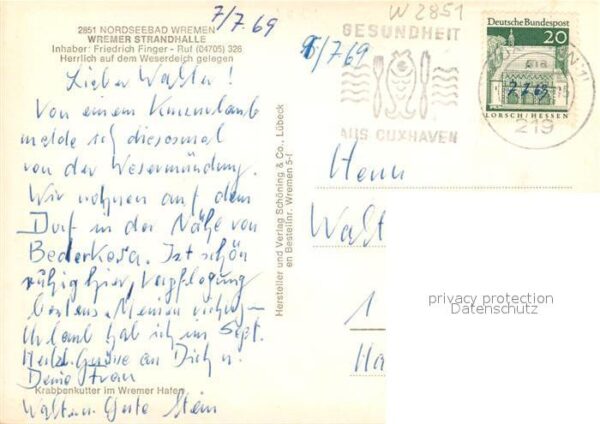 2851 NORDSEEBAD WREMEN
WREMER STRANDHALLE
Inhaber: Friedrich Finger - Ruf (04705) 326
Herrlich auf dem Weserdeich gelegen
7/7.69
Lieber Walter!
Von einem Kurzurlaub
melde ich diesesmal
von der Wesermündung.
Wir wohnen auf dem
Dorf in der Nähe von
Bederkesa. Ist schön
ruhig hier, Verpflegung
bestens. Meinen richtigen
Urlaub hab ich im Sept.
Herzl. Grüsse an Dich u.
Deine Frau
Krabbenkutter im Wremer Hafen
Walter u. Gute Stein
Hersteller und Verlag Schöning & Co., Lübeck
en Bestellnr. Wremen 5-(
W 2851
/7.69
GESUNDHEIT
AUS CUXHAVEN
Deutsche Bundespost
20
LORSCH/HESSEN
219
Herrn
Walt
1
Ha
privacy protection
Datenschutz